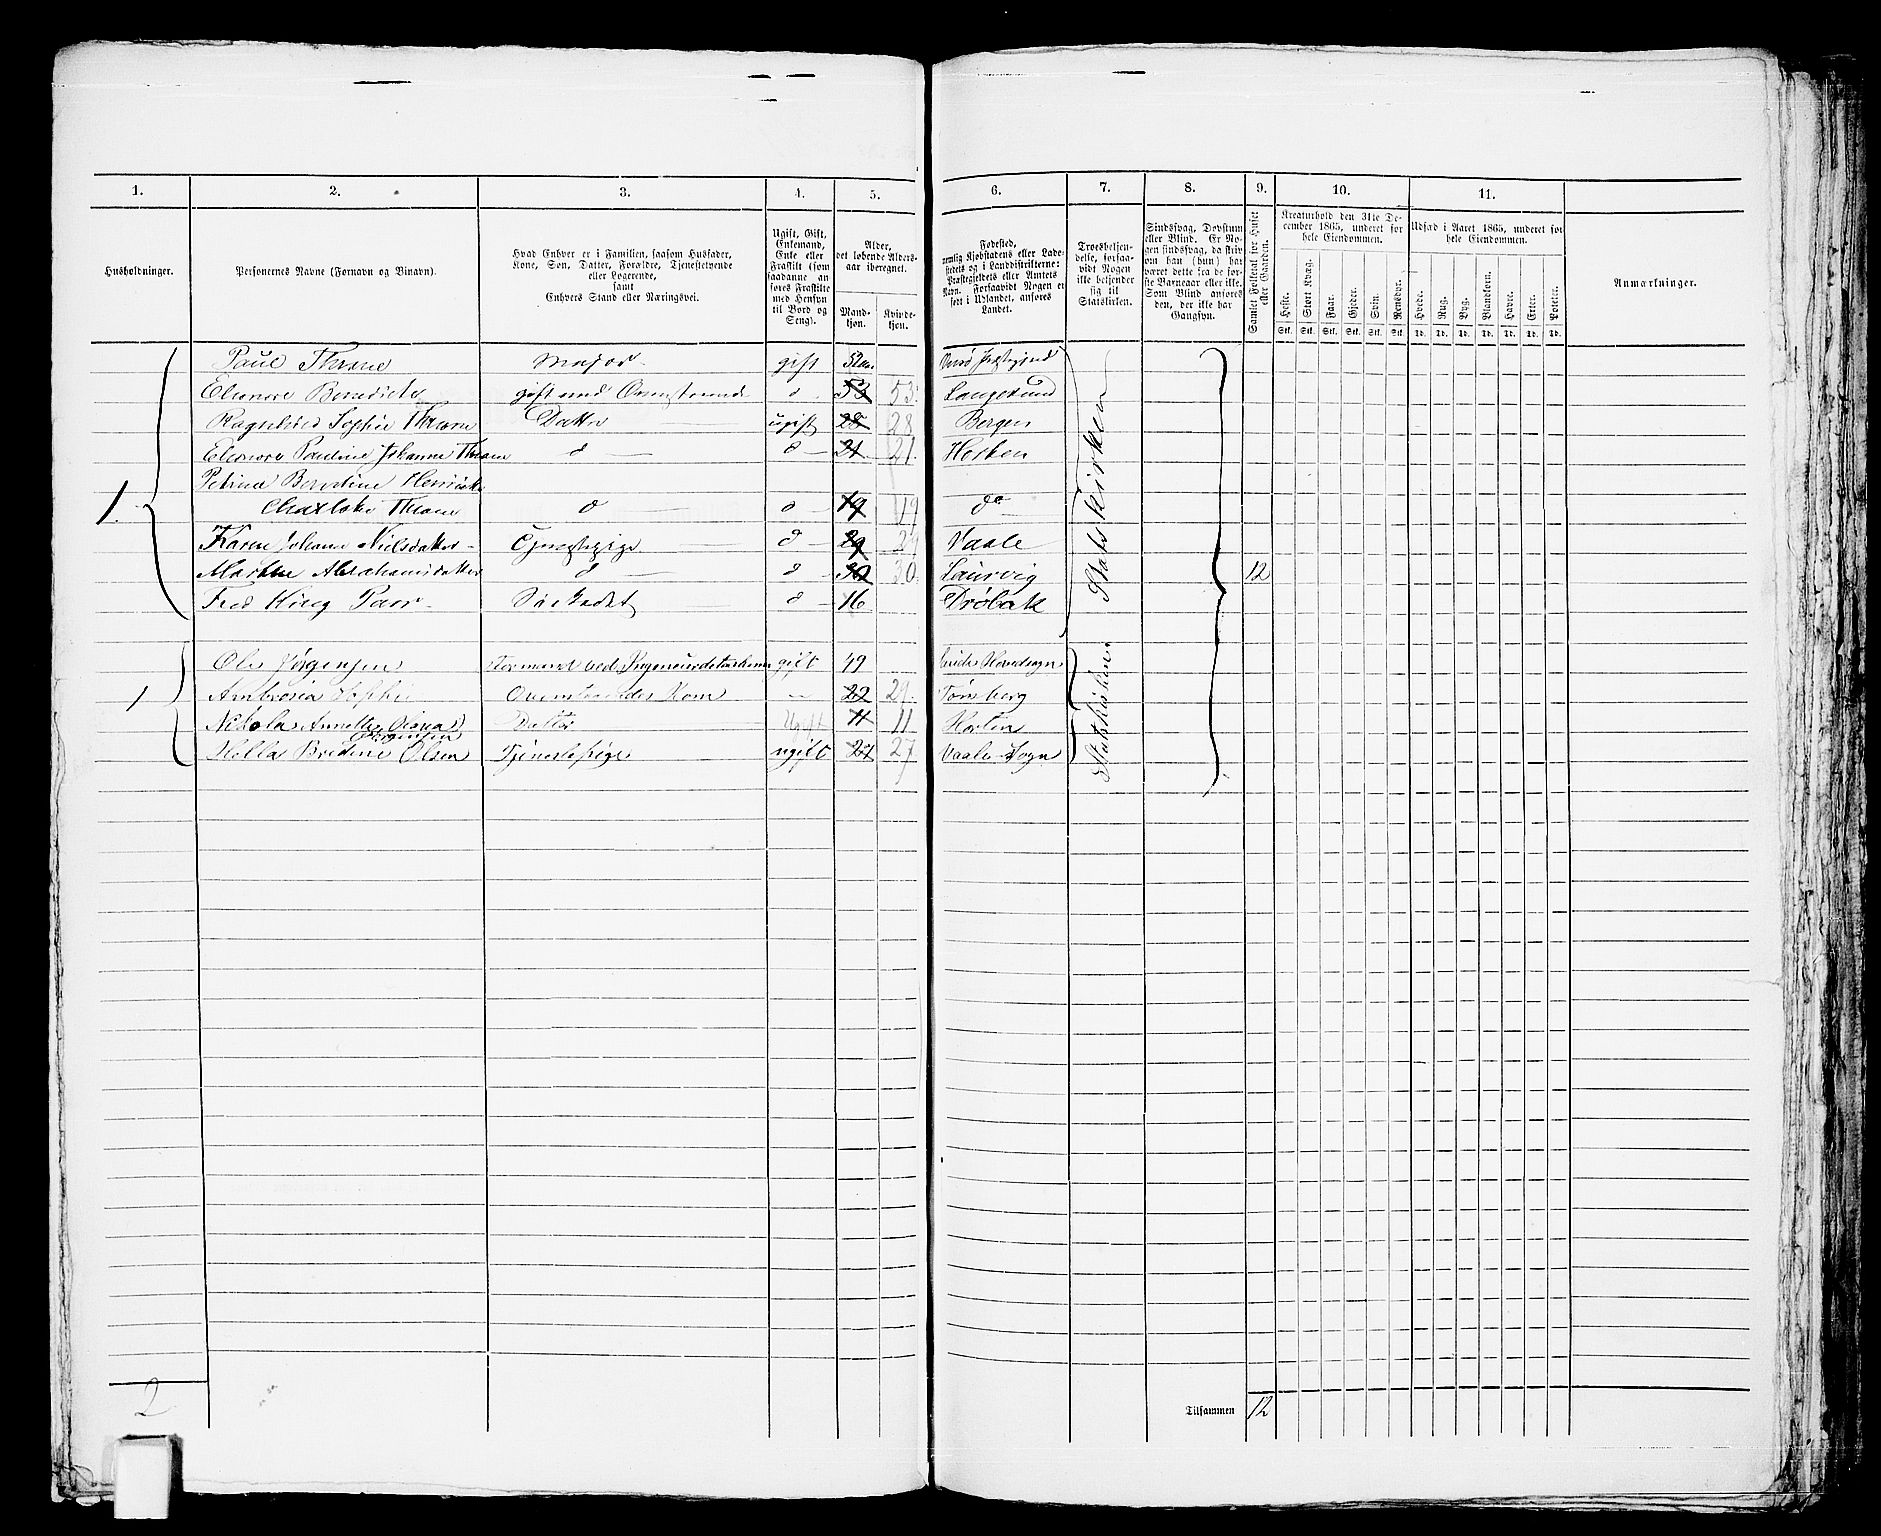 1. 2. 3. 4. 5. 6. 7. 8. 9. 10. 11.
Husholdninger.
Personernes Navne (Fornavn og Binavn).
Hvad Enhver er i Familien, saasom Husfader,
Kone, Søn, Datter, Forældre, Tjenestetyende
eller Logerende,
samt
Enhvers Stand eller Næringsvei.
Ugift, Gift,
Enkemand,
Enke eller
Fraskilt (som
saadanne an-
føres Fraskilte
med Hensyn
til Bord og
Seng).
Alder,
det løbende Alders-
aar iberegnet.
Mand-
kjøn.
Kvinde-
kjøn.
Fødested,
nemlig Kjøbstadens eller Lade-
stedets og i Landdistrikterne:
Præstegjeldets eller Amtets
Navn. Forsaavidt Nogen er
født i Udlandet, anføres
Landet.
Troesbekjen-
delse, forsaa-
vidt Nogen
ikke bekjender
sig til
Statskirken.
Sindssvag, Døvstum
eller Blind. Er No-
gen sindssvag, da skriv
om han (hun) har
været dette fra de før-
ste Barneaar eller ikke.
Som Blind anføres
den, der ikke har
Gangsyn.
Samlet Folketal for Huset
eller Gaarden.
Kreaturhold den 31te De-
cember 1865, underet for
hele Eiendommen.
Heste. Stort Kvæg. Faar. Gjeder. Svin. Rensdyr.
Stk. Stk. Stk. Stk. Stk. Stk.
Udsæd i Aaret 1865, underet for
hele Eiendommen.
Hvede. Rug. Byg. Blandkorn. Havre. Erter. Poteter.
Td. Td. Td. Td. Td. Td. Td.
Anmærkninger.
1. Paul Thrane Major gift 52
Eleonore Benedicte gift med Ovenstaaende d 53 53 Langesund
Ragnhild Sophie Thrane Datter ugift 28 28 Bergen
Eleonore Pauline Johanne Thrane d 21 21 Horten
Petrine Berntine Henriette
Charlotte Thrane d d 19 19 do
Karen Johanne Nielsdatter Tjenestepige d 29 29 Vaale
Marthe Abrahamsdatter d d 30 30 Laurvig 12
Fred King Parr Søekadet d 16 Drøbak
Statskirken
1 Ole Jørgensen Formand ved gift 49
Ambrosia Sophie Ovenstaaendes Kone 29 Tønsberg
Nikola Annette Olsen Jørgensen Datter Ugift 11 11 Horten
Hella Bredine Olsen Tjenestepige ugift 27 27 Vaale Sogn
Statskirken
2
Tilsammen 12